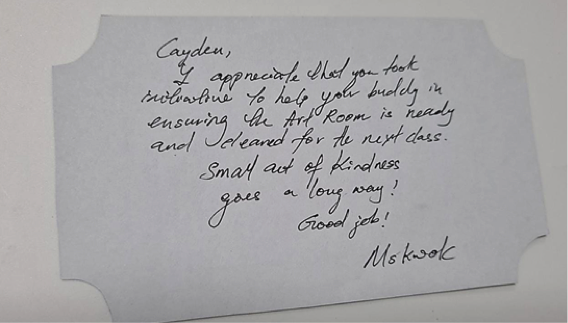 Cayden,
I appreciate that you took
initiative to help your buddy in
ensuring the Art Room is ready
and cleared for the next class.
Small act of kindness
goes a long way!
Good job!
Ms Kwok